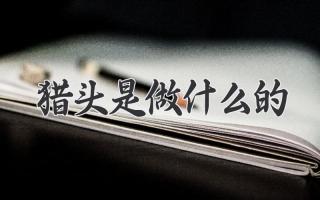 猎头是做什么的